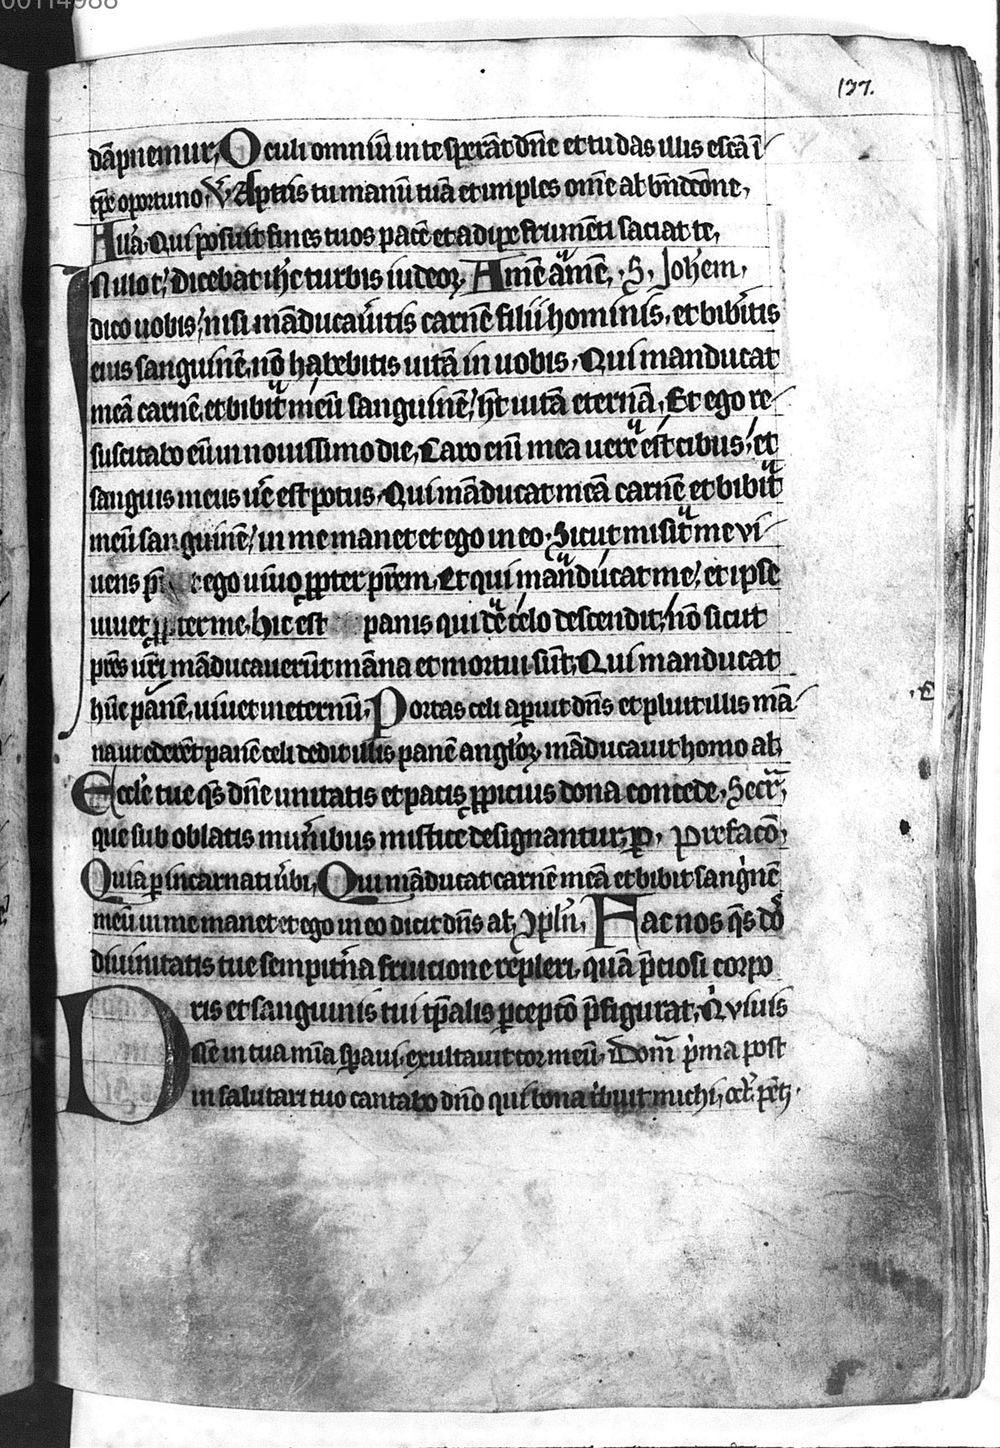 00114988
137.
dāpnemur, Oculi omniū in te sperāt dn̄e et tu das illis escā ī
tp̄r oportuno, V̄ Apiris tu manū tuā et imples om̄e al bn̄dcōne,
Alla. Qui posuit fines tuos pacē et adipe frumēti saciat te,
In illo t̄; dicebat ih̄c turbis iudeoꝝ, Amē amē, S, Joh̄em,
dico uobis; nisi māducau̾itis carnē filii hominis, et bib̾itis
eius sanguinē, nō habebitis uitā in uobis, Qui manducat
meā carnē, et bibit meū sanguinē, h̄t uitā eternā, Et ego re
suscitabo eū in nouissimo die, Caro eni mea uere est cibus, et
sanguis meus u̾e est potus, Qui māducat meā carnē et bibit
meū sanguinē, in me manet et ego in eo, Sicut misit me vi
uens ego uiuo ꝓpter pr̄em, Et qui manducat me, et ipse
uiuet me, hic est panis qui de celo descendit, nō sicut
pr̄es ur̄i māducauerūt māna et mortui sūt, Qui manducat
hūc panē, uiuet in eternū, Portas celi aꝑuit dn̄s et pluit illis mā
na ut ederēt panē celi dedit illis panē angl̾oꝝ, māducauit homo al,
Eccle̾ tue qs̄ dn̄e unitatis et pacis ꝓpicius dona concede, Secr̄,
que sub oblatis mun̾ibus mistice designantur, ꝑ, prefacō,
Quia ꝑ incarnati u̾bi, Qui māducat carnē meā et bibit sangnē
meū in me manet et ego in eo dicit dn̄s al, Fac nos qs̄ dō
diuinitatis tue sempit̾na fruicione repleri, quā p̄ciosi corpo
ris et sanguinis tui tp̄alis ꝑcepcō p̄figurat, Q̇ viuis
Dn̄e in tua mīa sp̄aui, exultauit cor meū, Dom̄ p̾ma post
in salutari tuo cantabo dn̄o qui bona t̾buit michi,